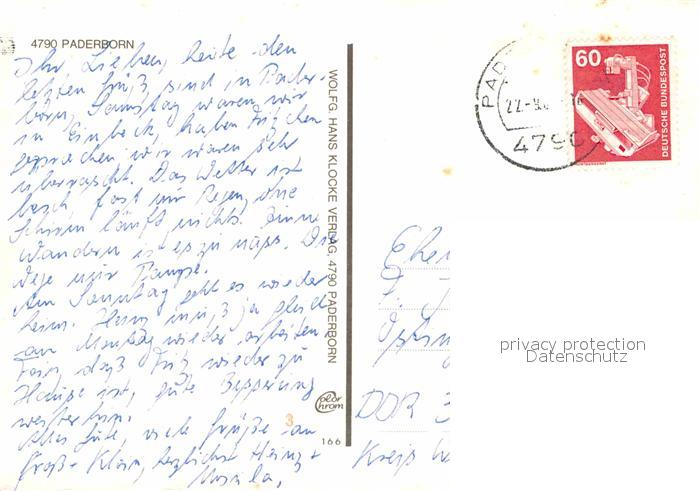 4790 PADERBORN
Ihr Lieben, heute den
letzten Gruß, sind in Pader-
born, Samstag waren wir
in Einbeck, haben Fritzchen
gesprochen, wir waren sehr
überrascht. Das Wetter ist
besch, fast nur Regen, ohne
Schirm läuft nichts. Zum
Wandern is es zu naß. Die
Wege nur Pampe.
Am Sonntag geht es wieder
heim. Heinz muß ja gleich
am Montag wieder arbeiten.
Fein, daß Fritz wieder zu
Hause ist, gute Besserung
weiterhin.
Alles Gute, viele Grüße an
Groß + Klein, herzlichst Heinz +
WOLFG. HANS KLOCKE VERLAG, 4790 PADERBORN
color
chrom
3
166
PAD
22.-9.
4790
60
DEUTSCHE BUNDESPOST
DDR
Kreis
privacy protection
Datenschutz